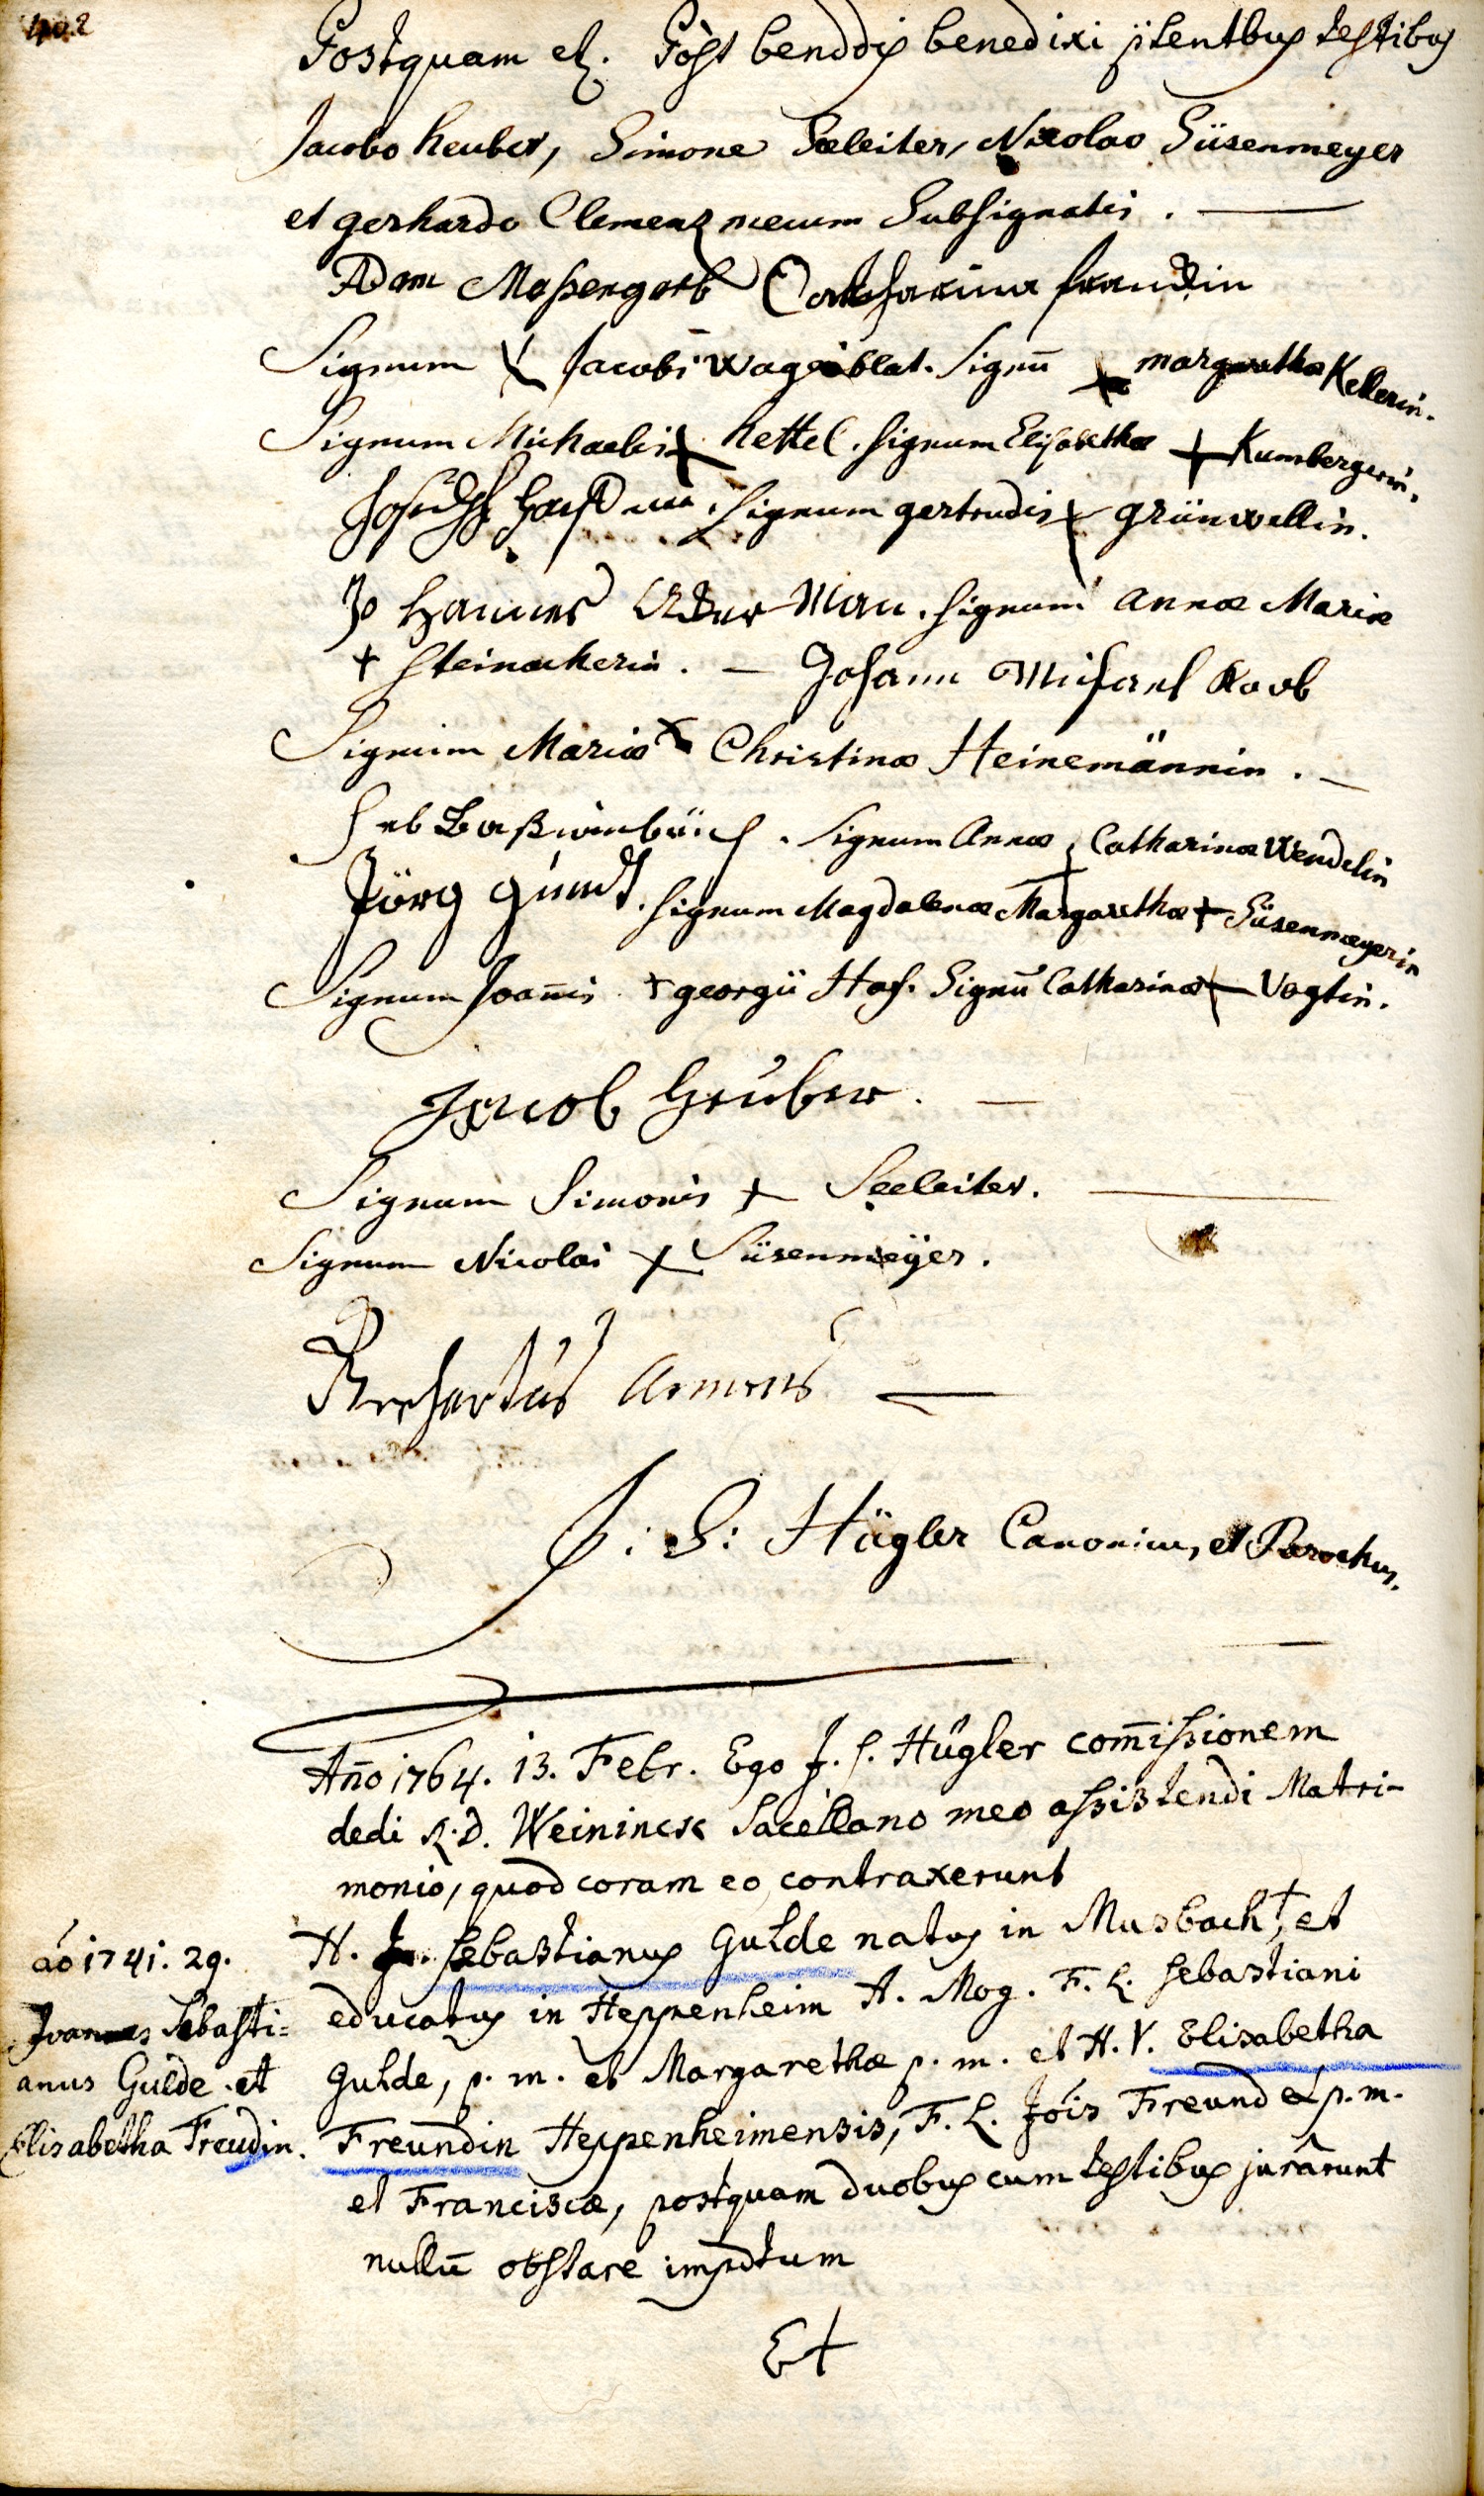 402
Postquam etz. Pòst bendõs benedixi p̃tentbus testibus
Jacobo heuber, Simone Seeleiter, Nicolao Süsenmeyer
et gerhardo Clemenz mecum Subsignatis. —
Adam Massengarb Catharina freudin
Signum + Jacobi Wageiblat. Signū + margaretha Kellerin.
Signum Michaelis + hettel. signum Elisabethæ + Kumbergerin.
Joseph signum gertrudis + grünwellin.
Johannes Ader Man. signum annæ Mariæ
+ steinackerin. — Johann Michael Koob
Signum Mariæ + Christinæ Heinemännin. —
signum Annæ + Catharinæ Wendelin
Jörg signum Magdalenæ Margarethæ + Süsenmeyerin
Signum Joan̄is + georgii Hos. Signū Catharinæ + Vogtin.
Jacob heuber. —
Signum Simonis + Seeleiter. —
Signum Nicolai + Süsenmeÿer.
J: S: Hügler Canonicus, et Parochus.
An̄o 1764. 13. Febr. Ego J. S. Hügler com̄issionem
dedi R. D. Weininck Sacellano meo assistendi Matri-
monio, quod coram eo contraxerunt
áo 1741. 29.
Joannes Sebasti=
anus Gulde et
Elisabetha Freudin.
H. Sebastianus Gulde natus in Musbach +, et
educatus in Heppenheim A. Mog. F. L. Sebastiani
Gulde, p. m. et Margarethæ p. m. et H. V. Elisabetha
Freundin Heppenheimensis, F. L. Jóis Freund p. m.
et Franciscæ, postquam duobus cum testibus jurârunt
nullū obstare impdtum
Et